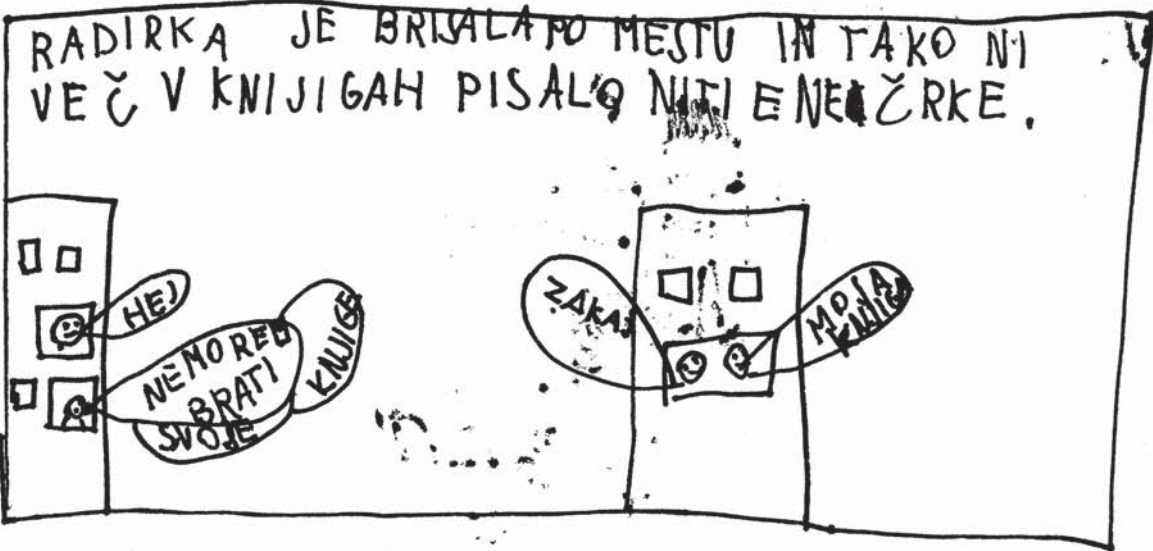 RADIRKA JE BRISALA PO MESTU IN TAKO NI
VEČ V KNJIJIGAH PISALO NITI ENE ČRKE.
HEJ
NE MOREM
BRATI
SVOJE
KNJIGE
ZAKAJ
MOJA
KNJIGA